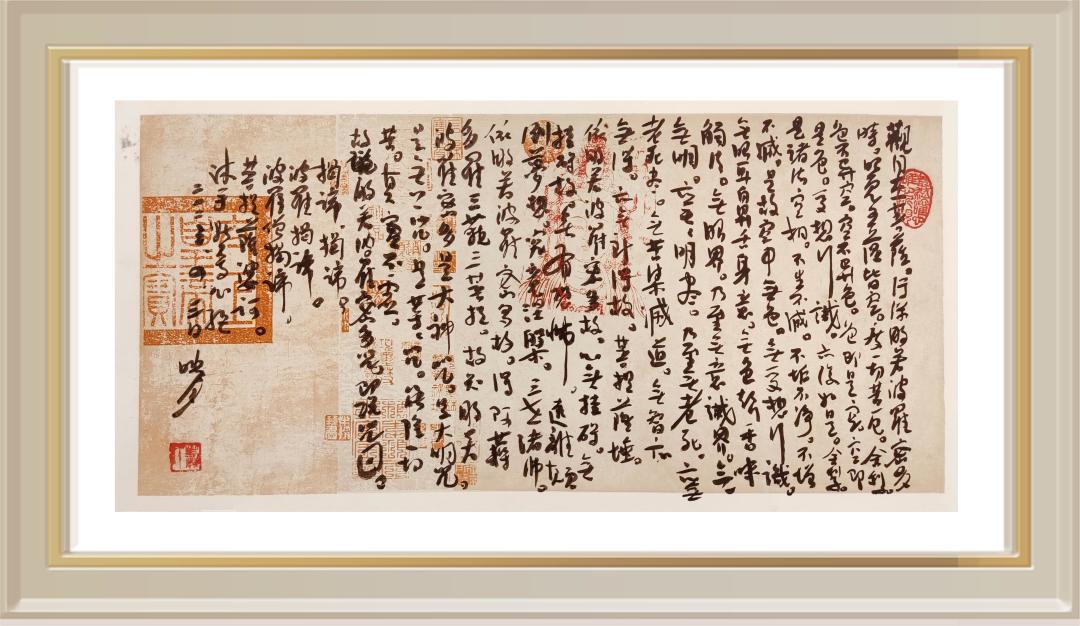 觀自在菩薩。行深般若波羅密多
時。照見五蘊皆空。度一切苦厄。舍利子。
色不異空。空不異色。色即是空。空即
是色。受想行識。亦復如是。舍利子。
是諸法空相。不生不滅。不垢不淨。不增
不減。是故空中無色。無受想行識。
無眼耳鼻舌身意。無色聲香味
觸法。無眼界。乃至無意識界。無
無明。亦無無明盡。乃至無老死。亦無
老死盡。無苦集滅道。無智亦
無得。以無所得故。菩提薩埵。
依般若波羅密多故。心無挂礙。無
挂礙故。無有恐怖。遠離顛
倒夢想。究竟涅槃。三世諸佛。
依般若波羅密多故。得阿耨
多羅三藐三菩提。故知般若
波羅密多。是大神咒。是大明咒。
是無上咒。是無等等咒。能除一切
苦。真實不虛。
故說般若波羅密多咒。即說咒曰。
揭諦。揭諦。
波羅揭諦。
波羅僧揭諦。
菩提薩婆訶。
沐手敬寫心經